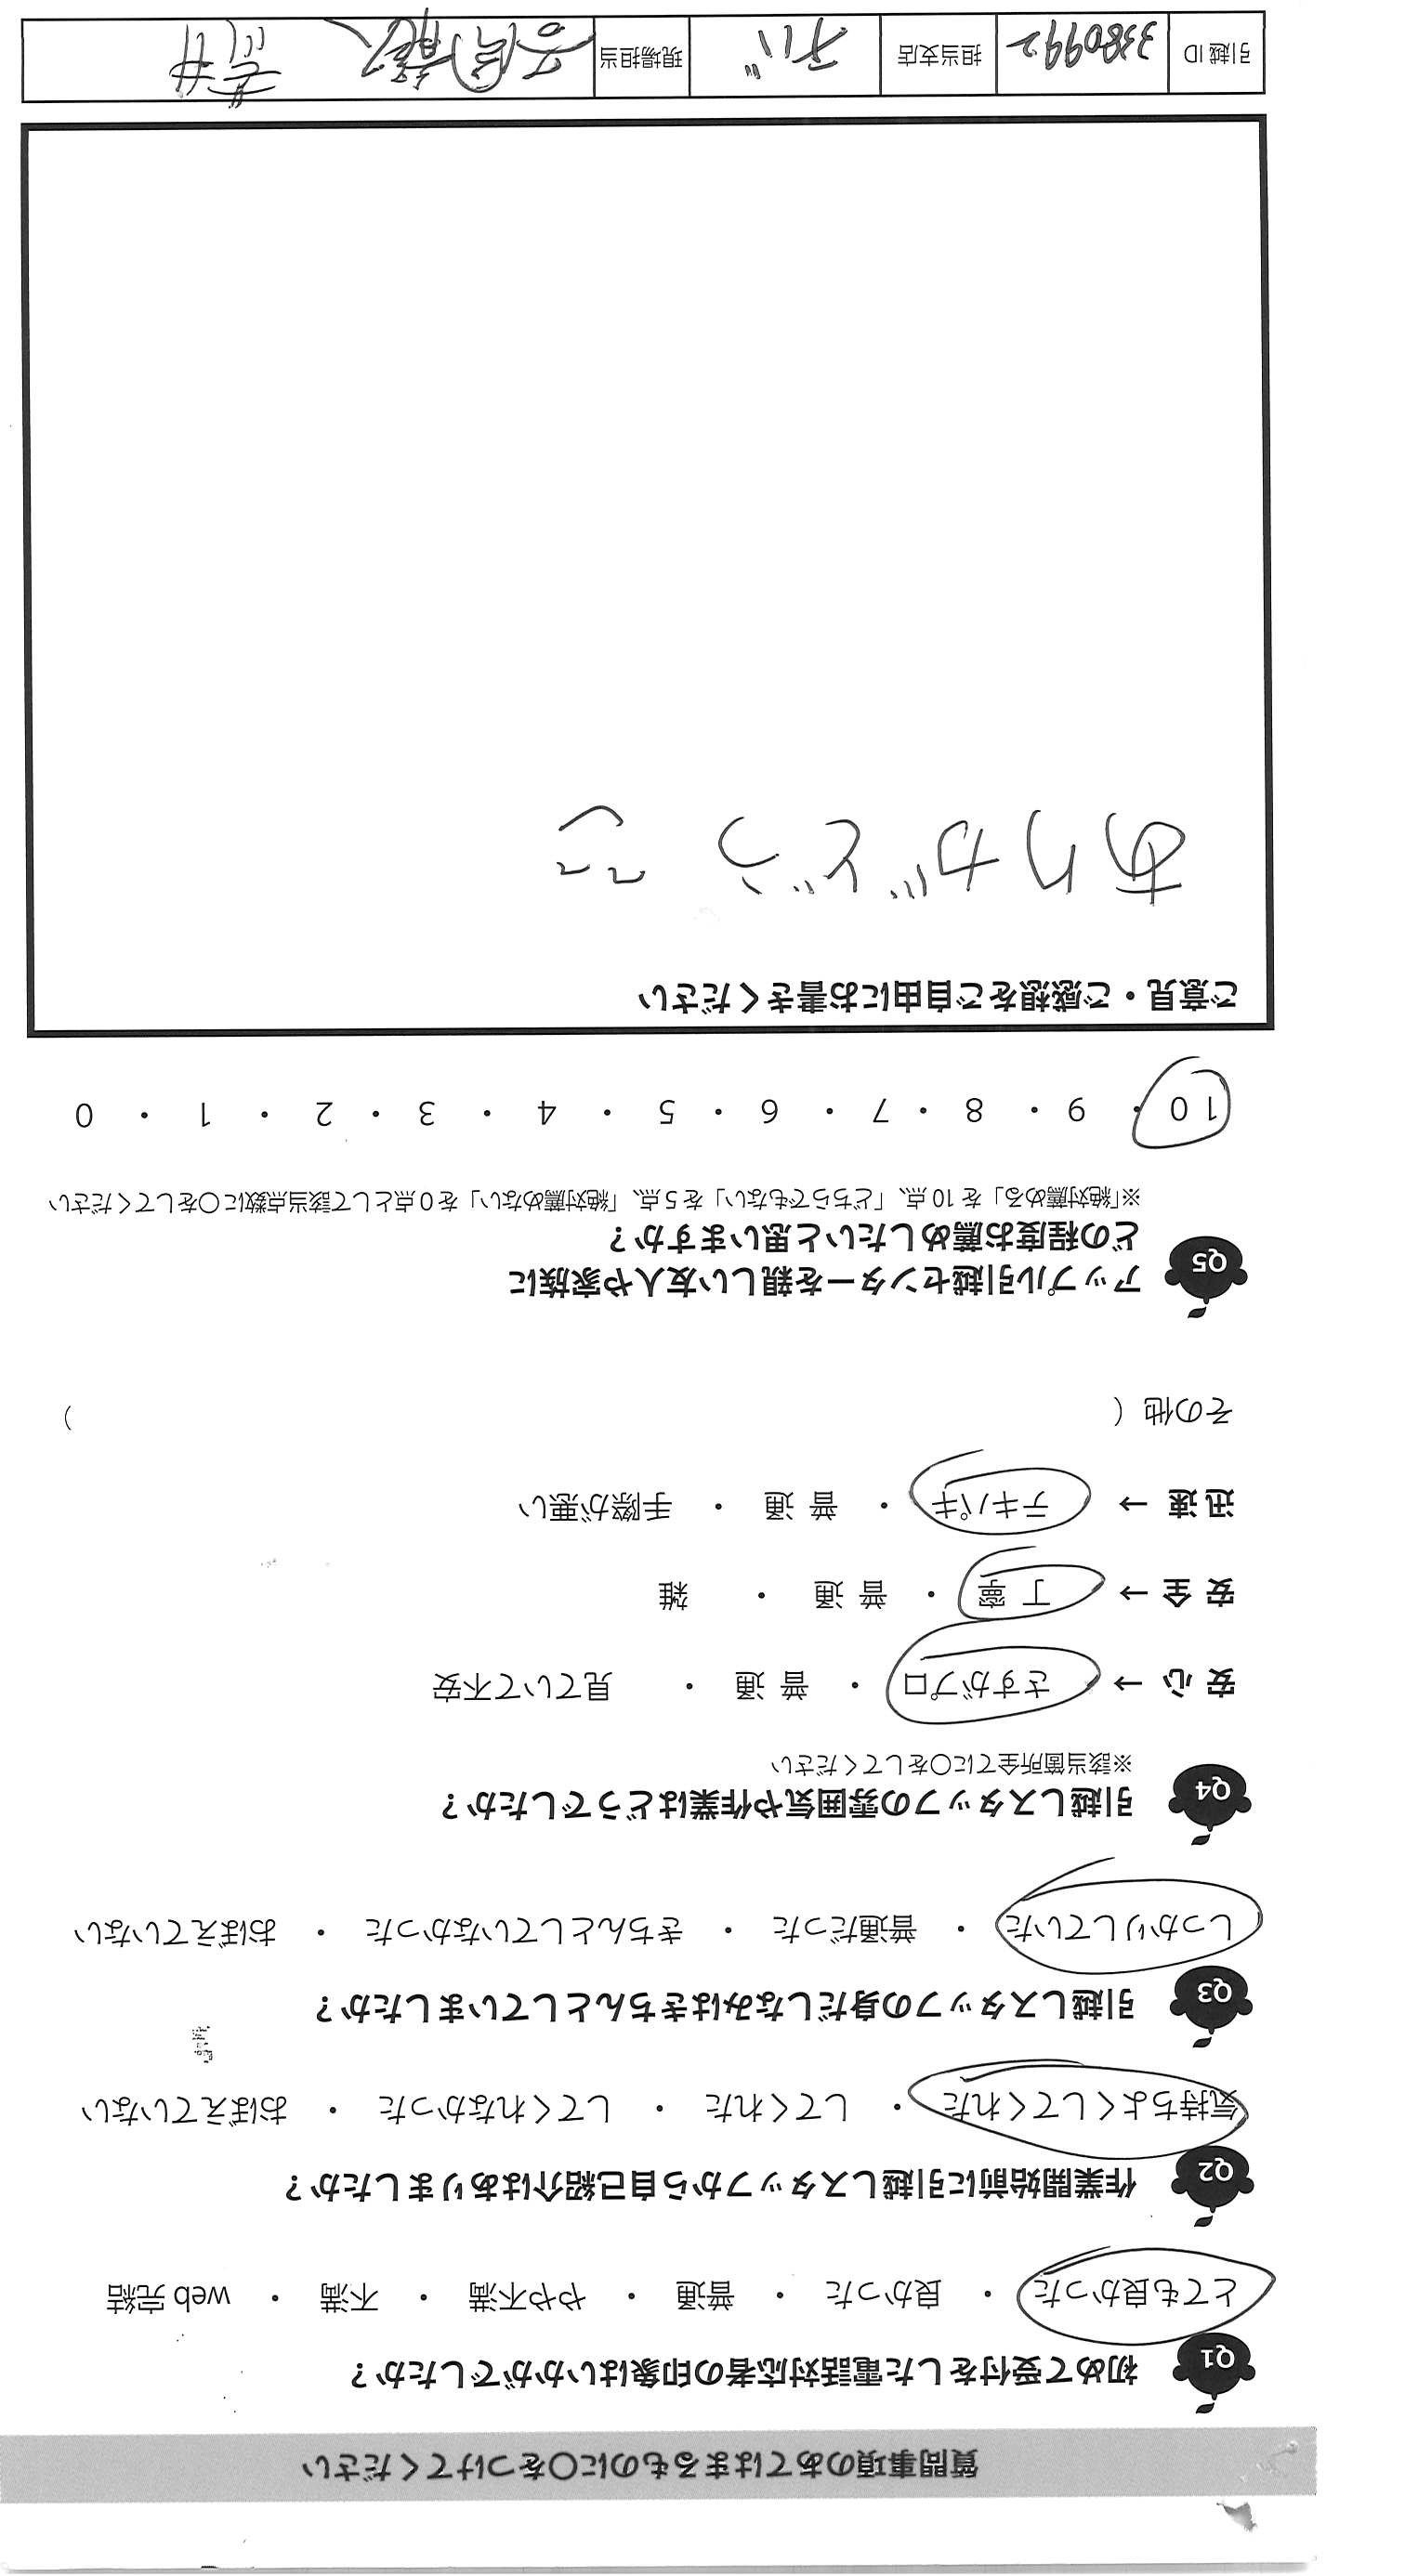 質問事項のあてはまるものに○をつけてください
Q1 初めて受付をした電話対応者の印象はいかがでしたか？
とても良かった ・ 良かった ・ 普通 ・ やや不満 ・ 不満 ・ web 完結
Q2 作業開始前に引越しスタッフから自己紹介はありましたか？
気持ちよくしてくれた ・ してくれた ・ してくれなかった ・ おぼえていない
Q3 引越しスタッフの身だしなみはきちんとしていましたか？
しっかりしていた ・ 普通だった ・ きちんとしていなかった ・ おぼえていない
Q4 引越しスタッフの雰囲気や作業はどうでしたか？
※該当箇所全てに○をしてください
安 心 → さすがプロ ・ 普 通 ・ 見ていて不安
安 全 → 丁 寧 ・ 普 通 ・ 雑
迅 速 → テキパキ ・ 普 通 ・ 手際が悪い
その他（ ）
Q5 アップル引越センターを親しい友人や家族に
どの程度お薦めしたいと思いますか？
※「絶対薦める」を 10 点、「どちらでもない」を 5 点、「絶対薦めない」を 0 点として該当点数に○をしてください
10 ・ 9 ・ 8 ・ 7 ・ 6 ・ 5 ・ 4 ・ 3 ・ 2 ・ 1 ・ 0
ご意見・ご感想をご自由にお書きください
ありがどう ^^
引越 ID 3380992 担当支店 チバ 現場担当